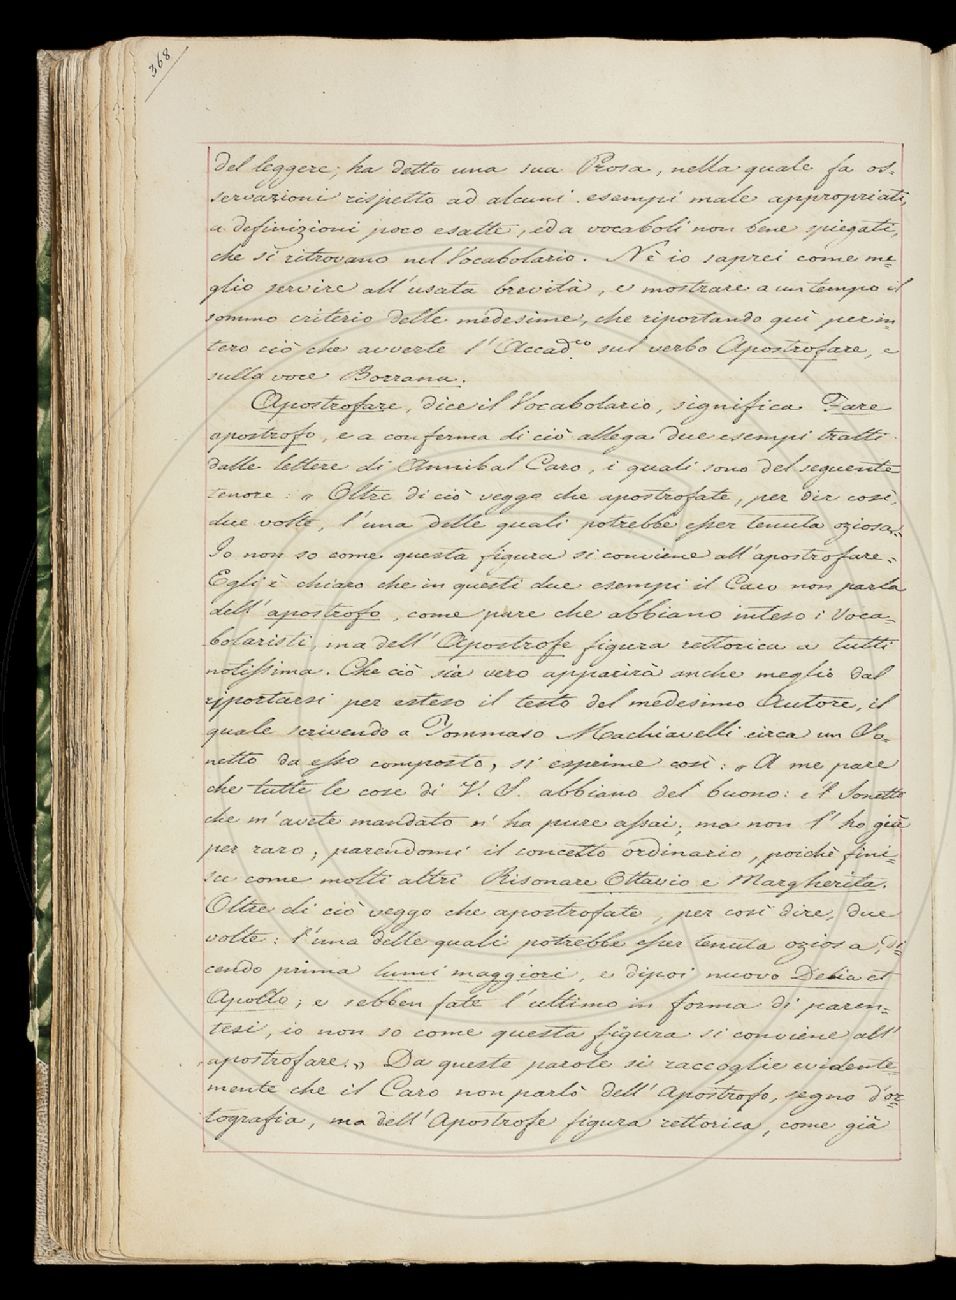 368
del leggere, ha detto una sua Prosa, nella quale fa os-
servazioni rispetto ad alcuni esempi male appropriati,
a definizioni poco esatte, ed a vocaboli non bene spiegati,
che si ritrovano nel Vocabolario. Nè io saprei come me-
glio servire all'usata brevità, e mostrare a un tempo il
sommo criterio delle medesime, che riportando quì per in-
tero ciò che avverte l'Accad.co sul verbo Apostrofare, e
sulla voce Borrana.
Apostrofare, dice il Vocabolario, significa Fare
apostrofo, e a conferma di ciò allega due esempi tratti
dalle lettere di Annibal Caro, i quali sono del seguente
tenore: „ Oltre di ciò veggo che apostrofate, per dir così,
due volte, l'una delle quali potrebbe esser tenuta oziosa.=
Io non so come questa figura si conviene all'apostrofare=
Egli è chiaro che in questi due esempi il Caro non parla
dell'apostrofo, come pure che abbiano inteso i Voca-
bolaristi, ma dell'Apostrofe figura rettorica a tutti
notissima. Che ciò sia vero apparirà anche meglio dal
riportarsi per esteso il testo del medesimo Autore, il
quale scrivendo a Tommaso Machiavelli circa un So-
netto da esso composto, si esprime così: „ A me pare
che tutte le cose di V. S. abbiano del buono: e 'l Sonetto
che m'avete mandato n'ha pure assai; ma non l'ho già
per raro; parendomi il concetto ordinario, poichè fini-
sce come molti altri Risonare Ottavio e Margherita.
Oltre di ciò veggo che apostrofate, per così dire, due
volte: l'una delle quali potrebbe esser tenuta oziosa, di-
cendo prima lumi maggiori, e dipoi nuovo Delia et
Apollo; e sebben fate l'ultimo in forma di paren-
tesi, io non so come questa figura si conviene all'
apostrofare.„ Da queste parole si raccoglie evidente-
mente che il Caro non parlò dell'Apostrofo, segno d'or-
tografia, ma dell'Apostrofe figura rettorica, come già